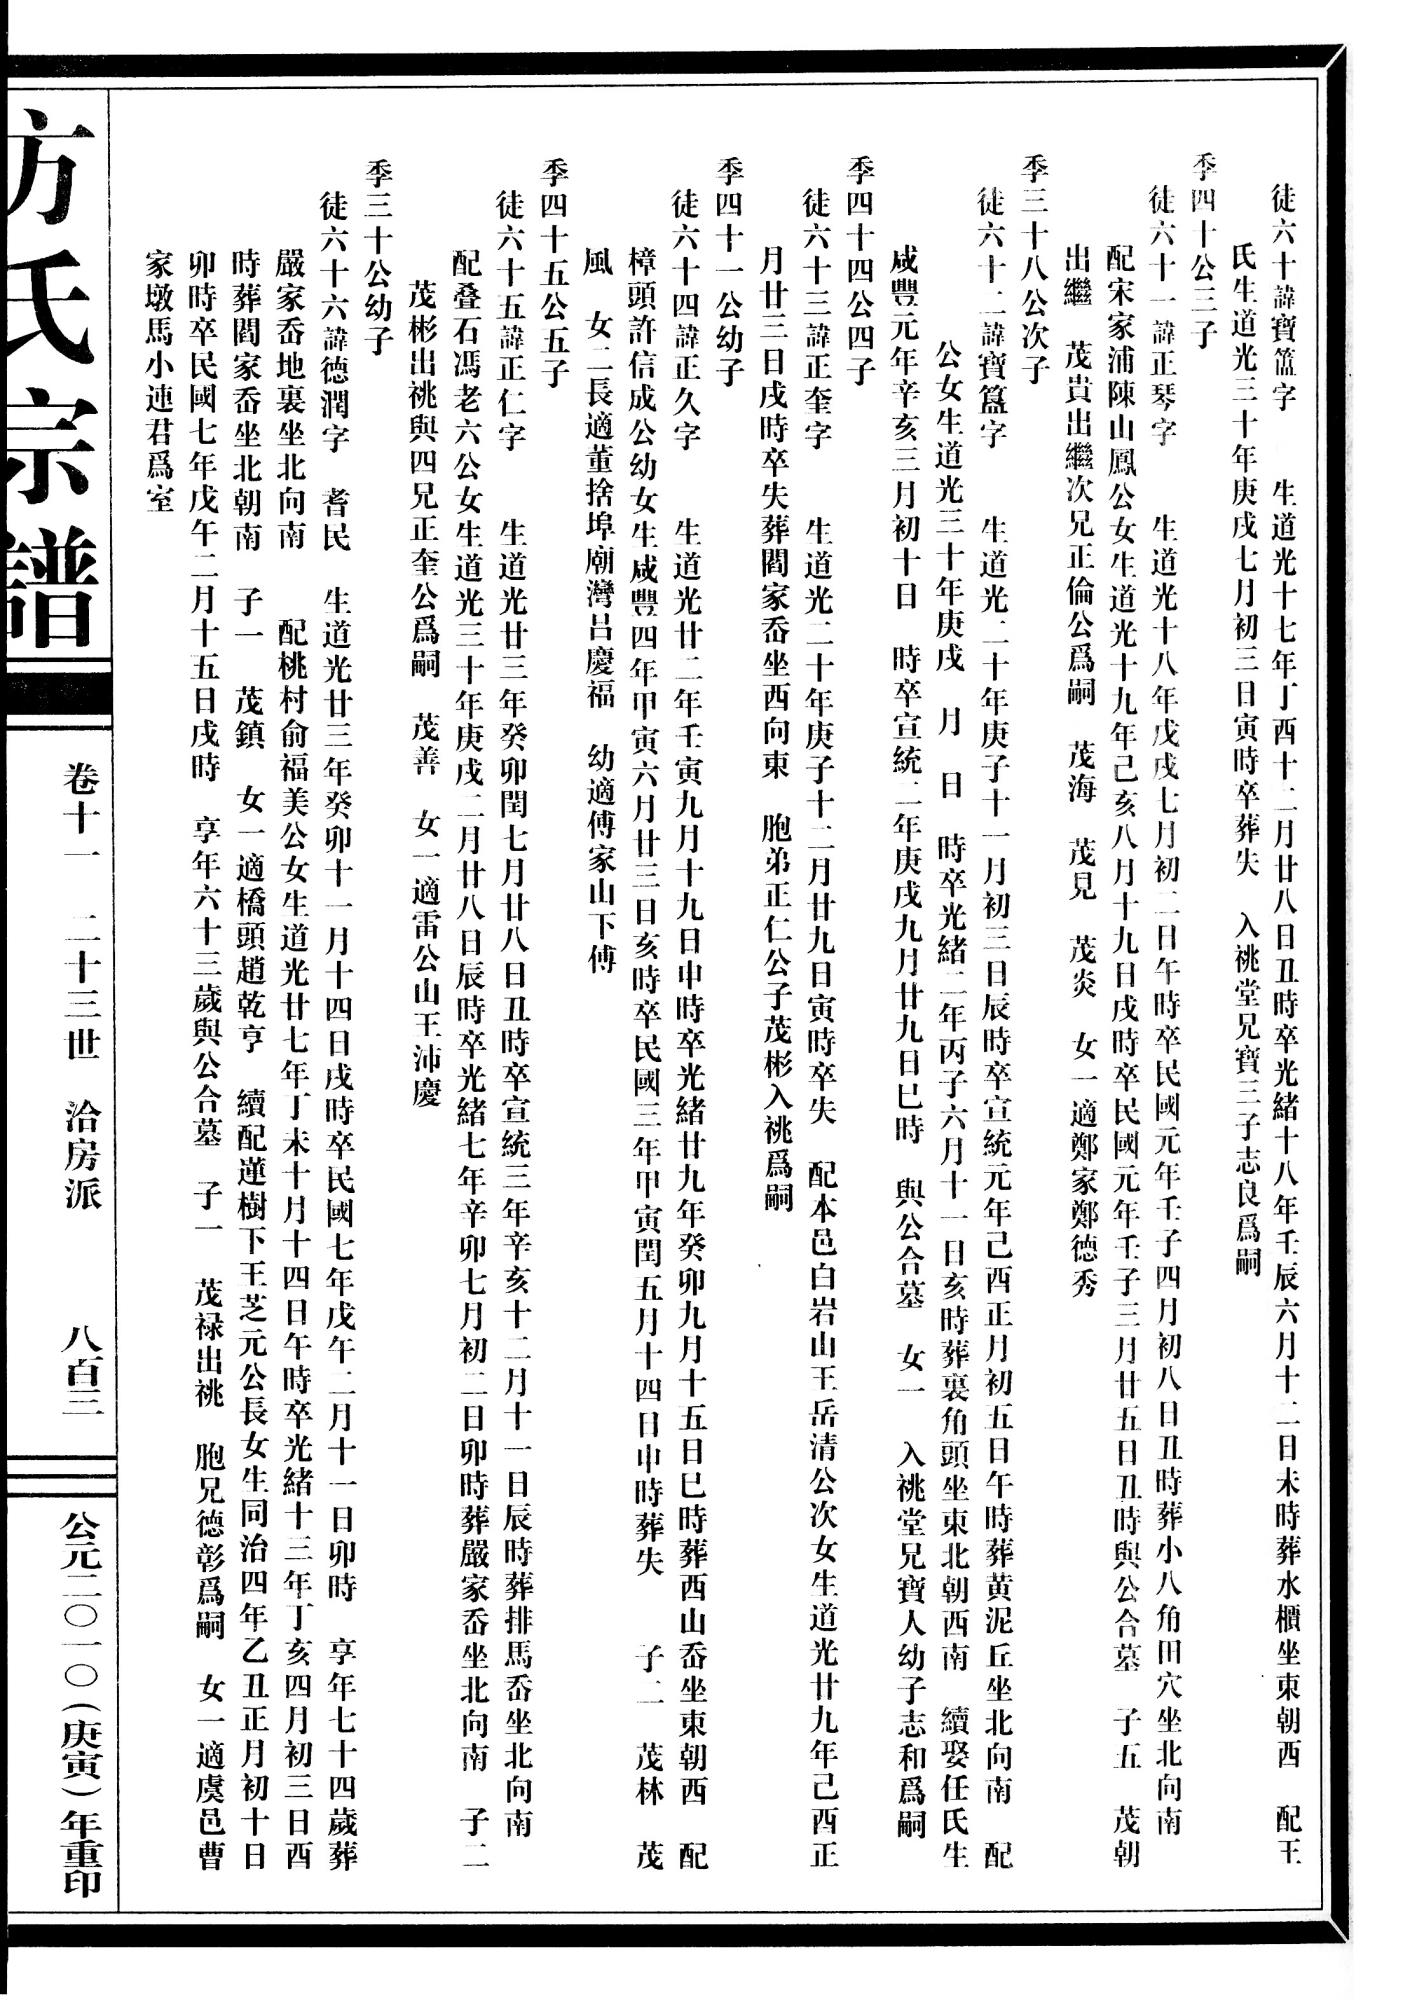 徒六十諱寶簠字　生道光十七年丁酉十二月廿八日丑時卒光緒十八年壬辰六月十二日未時葬水櫃坐東朝西　配王
氏生道光三十年庚戌七月初三日寅時卒葬失　入祧堂兄寶三子志良爲嗣
季四十公三子
徒六十一諱正琴字　生道光十八年戊戌七月初二日午時卒民國元年壬子四月初八日丑時葬小八角田穴坐北向南
配宋家浦陳山鳳公女生道光十九年己亥八月十九日戌時卒民國元年壬子三月廿五日丑時與公合墓　子五　茂朝
出繼　茂貴出繼次兄正倫公爲嗣　茂海　茂見　茂炎　女一適鄭家鄭德秀
季三十八公次子
徒六十二諱寶簋字　生道光二十年庚子十一月初三日辰時卒宣統元年己酉正月初五日午時葬黄泥丘坐北向南　配
公女生道光三十年庚戌　月　日　時卒光緒二年丙子六月十一日亥時葬裏角頭坐東北朝西南　續娶任氏生
咸豐元年辛亥三月初十日　時卒宣統二年庚戌九月廿九日巳時　與公合墓　女一　入祧堂兄寶人幼子志和爲嗣
季四十四公四子
徒六十三諱正奎字　生道光二十年庚子十二月廿九日寅時卒失　配本邑白岩山王岳清公次女生道光廿九年己酉正
月廿三日戌時卒失葬閻家岙坐西向東　胞弟正仁公子茂彬入祧爲嗣
季四十一公幼子
徒六十四諱正久字　生道光廿二年壬寅九月十九日申時卒光緒廿九年癸卯九月十五日巳時葬西山岙坐東朝西　配
樟頭許信成公幼女生咸豐四年甲寅六月廿三日亥時卒民國三年甲寅閏五月十四日申時葬失　子二　茂林　茂
風　女二長適董捨埠廟灣呂慶福　幼適傅家山下傅
季四十五公五子
徒六十五諱正仁字　生道光廿三年癸卯閏七月廿八日丑時卒宣統三年辛亥十二月十一日辰時葬排馬岙坐北向南
配叠石馮老六公女生道光三十年庚戌二月廿八日辰時卒光緒七年辛卯七月初二日卯時葬嚴家岙坐北向南　子二
茂彬出祧與四兄正奎公爲嗣　茂善　女一適雷公山王沛慶
季三十公幼子
徒六十六諱德潤字　耆民　生道光廿三年癸卯十一月十四日戌時卒民國七年戊午二月十一日卯時　享年七十四歲葬
嚴家岙地裏坐北向南　配桃村俞福美公女生道光廿七年丁未十月十四日午時卒光緒十三年丁亥四月初三日酉
時葬閻家岙坐北朝南　子一　茂鎮　女一適橋頭趙乾亨　續配蓮樹下王芝元公長女生同治四年乙丑正月初十日
卯時卒民國七年戊午二月十五日戌時　享年六十三歲與公合墓　子一　茂禄出祧　胞兄德彰爲嗣　女一適虞邑曹
家墩馬小連君爲室
方氏宗譜
卷十一　二十三世　洽房派　八百三
公元二〇一〇（庚寅）年重印